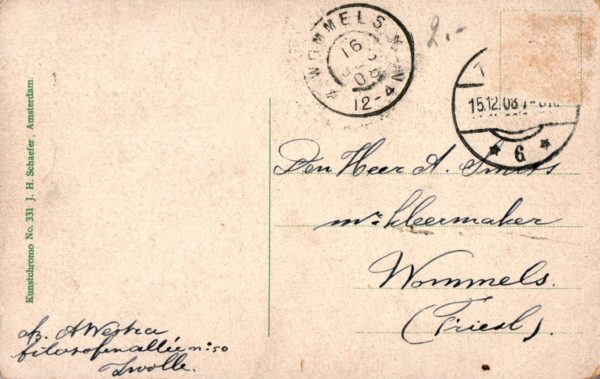 WOMMELS
16
08
12-4N
2.-
15.12.08
6
Den Heer A. Smits
mr kleermaker
Wommels.
(Friesl).
afz. A Westra
filosofenallée no: 50
Zwolle.
Kunstchromo No. 331 J. H. Schaefer, Amsterdam.